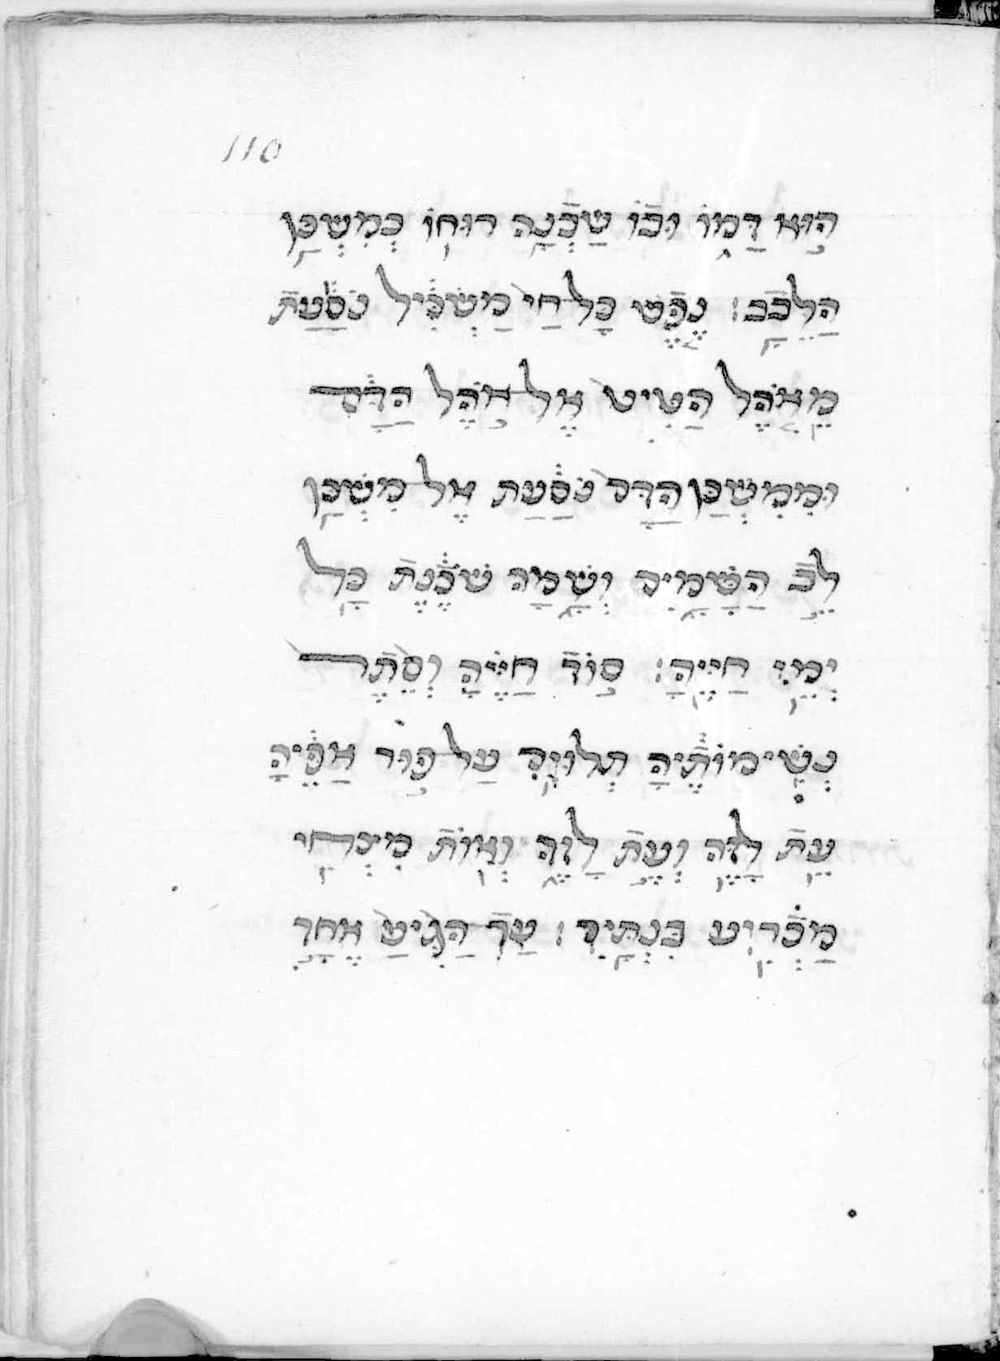 110
הוּא דָּמוֹ וּבוֹ שַׁכְּנָה רוּחוֹ כְּמִשְׁכַּן
הַלֵּבָב׃ נֶפֶשׁ כָּל חַי מַשְׂכִּיל נֹסַעַת
מֵאֹהֶל הַטִּיט אֶל אֹהֶל הַדָּם
וּמִמִּשְׁכַּן הַדָּם נֹסַעַת אֶל מִשְׁכַּן
לֵב הַשָּׁמַיִם וְשָׁמָּה שֹׁכֶנֶת כָּל
יְמֵי חַיֶּיהָ׃ סוֹד חַיֶּיהָ וְסֵתֶר
נְשִׁימוֹתֶיהָ תְלוּיִם עַל פּוּר אַפֶּיהָ
עֵת לָזֶה וְעֵת לָזֶה וְאוֹת מִנְּחִי
מַכְרִיעַ בִּנְתַיִם׃ עַד הַגִּיעַ אֶחָד